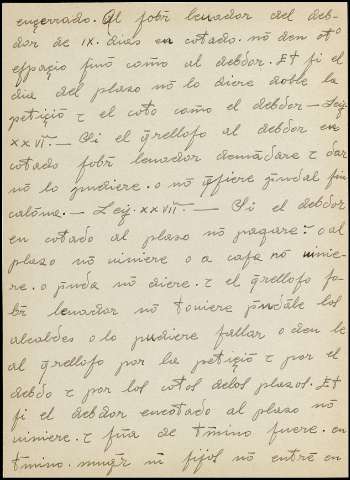 ençerrado. Al fobr̄ leuador del deb-
dor de IX. dias en cotado. nō den ot°
eſpaçio ſinō comō al debdor. Et ſi el
dia del plazo nō lo diere doble la
petiçiō τ el coto comō el debdor — Leiẏ
XXVI. — Si el q̄rellofo al debdor en
cotado fobr̄ leuador demādare τ dar
nō lo pudiere. o nō q̄fiere p̄ndal ſin
calōna. — Leiẏ. XXVII. — Si el debdor
en cotado al plazo nō pagare. o al
plazo nō uiniere o a cafa nō uinie-
re. o p̄nda nō diere. τ el q̄rellofo fo-
br̄ leuador nō touiere p̄ndāle los
alcaldes o lo pudiere fallar o den le
al q̄rellofo por la petiçiō τ por el
debdo τ por los cotos delos plazos. Et
ſi el debdor encotado al plazo nō
uiniere. τ fūa de t̄mino fuere. en
t̄mino. mugr̄ ni fijos nō entrē en